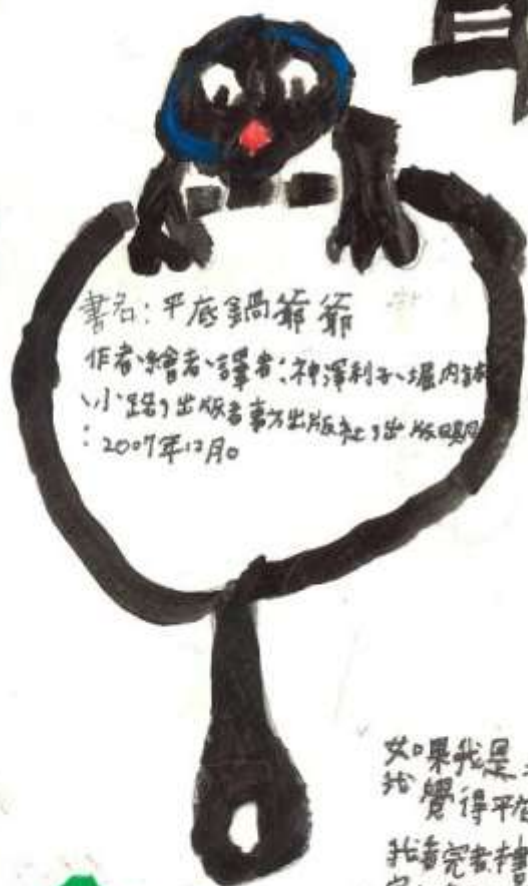 書名:平底鍋爺爺
作者、繪者、譯者:神澤利子、堀內誠
、小路,出版者東方出版社,出版日期
:2007年12月。
如果我是
我覺得平
我看完者本書